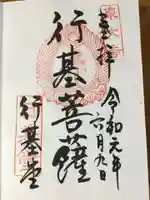 奉拝
令和元年
六月九日
行基菩薩
行基堂
東大寺